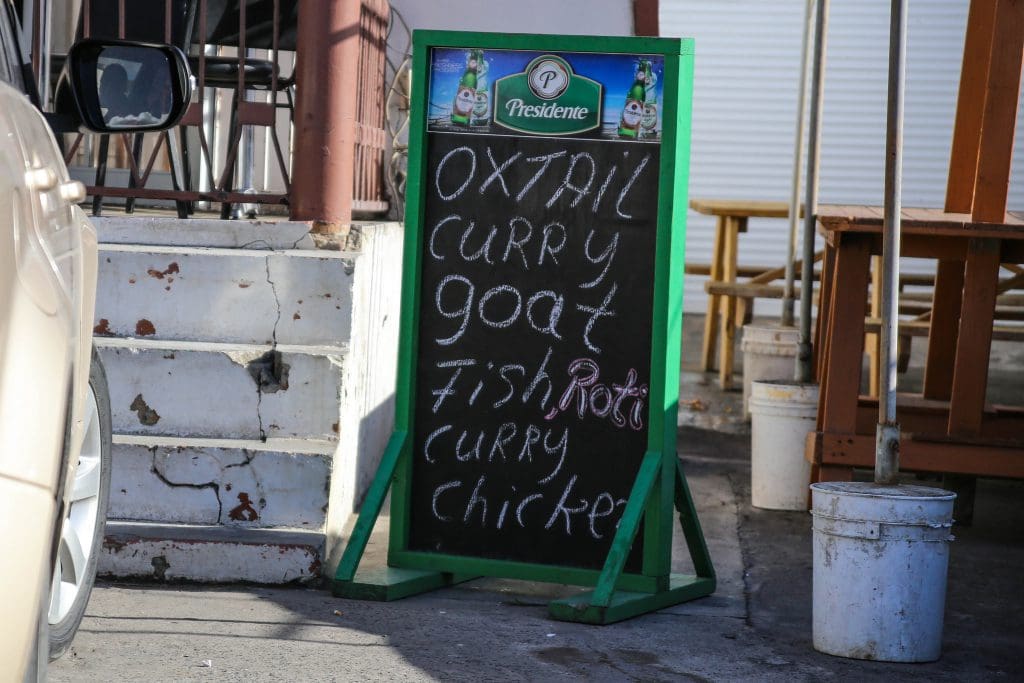 Presidente
OXTAIL
CURRY
goat
Fish, Roti
CURRY
Chicke